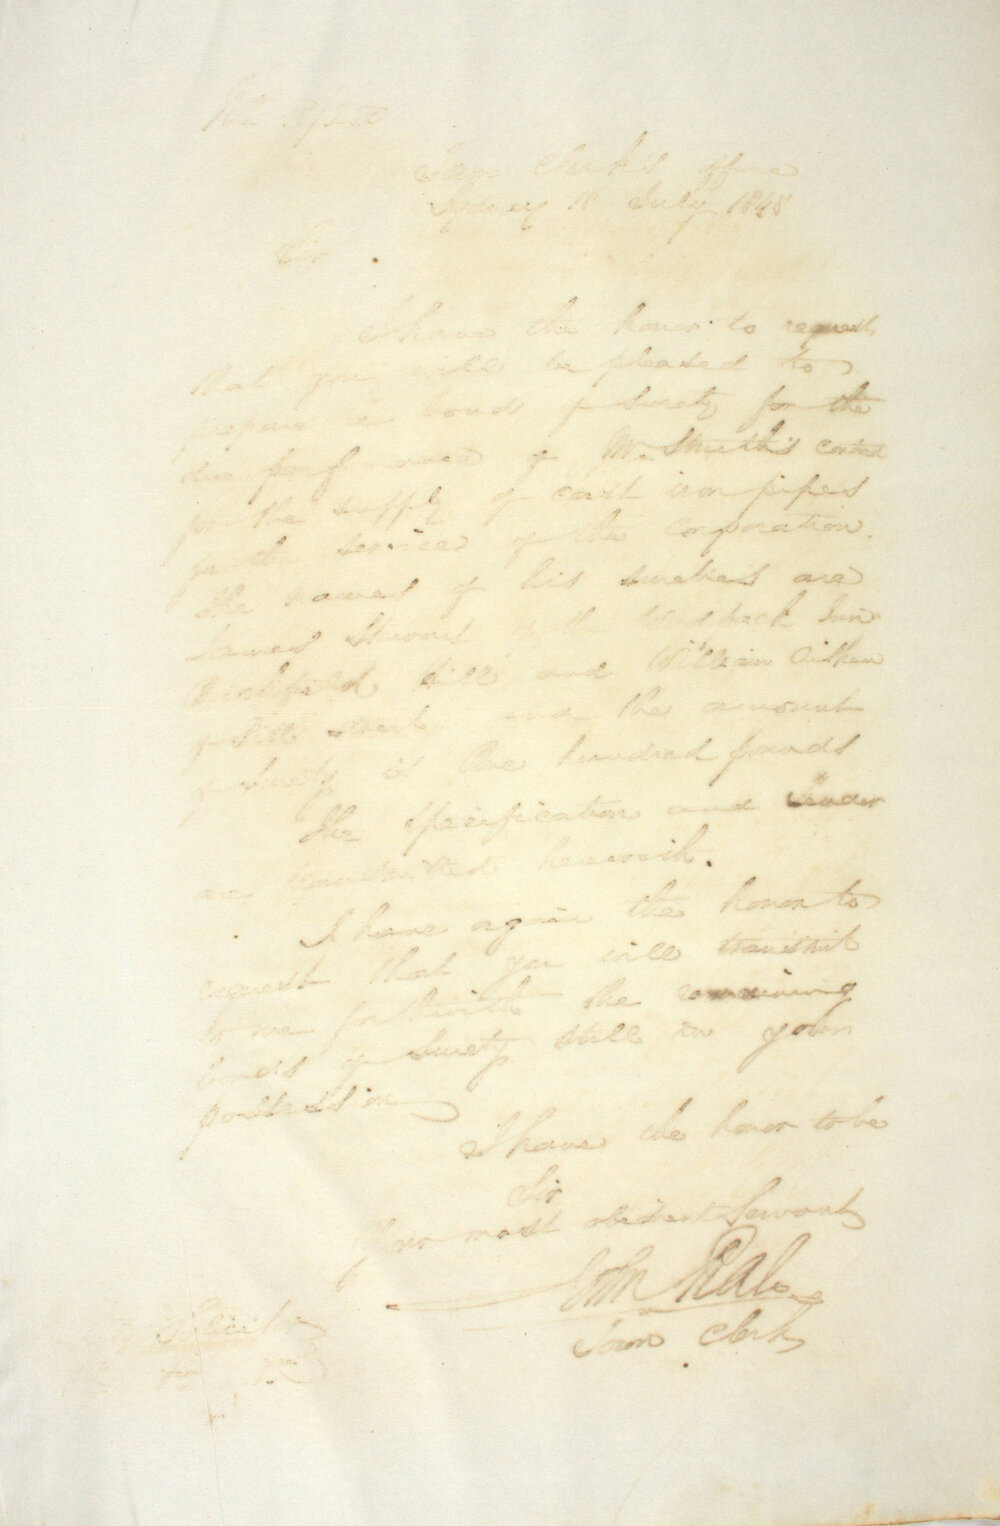 Town Clerk's Office
Sydney 18 July 1848
Sir
I have the honor to request
that you will be pleased to
prepare a bond of Surety for the
due performance of Mr Smith's contract
for the supply of cast iron pipes
for the service of the corporation.
The names of his sureties are
James Stewart of the Woolpack Inn
Brickfield Hill and William Aitken
of Pitt Street and the amount
of Surety is One hundred pounds
The specification and tender
are transmitted herewith.
I have again the honor to
request that you will transmit
to me forthwith the remaining
bonds of Surety still in your
possession
I have the honor to be
Sir
Your most obedient Servant
John Rule
Town Clerk